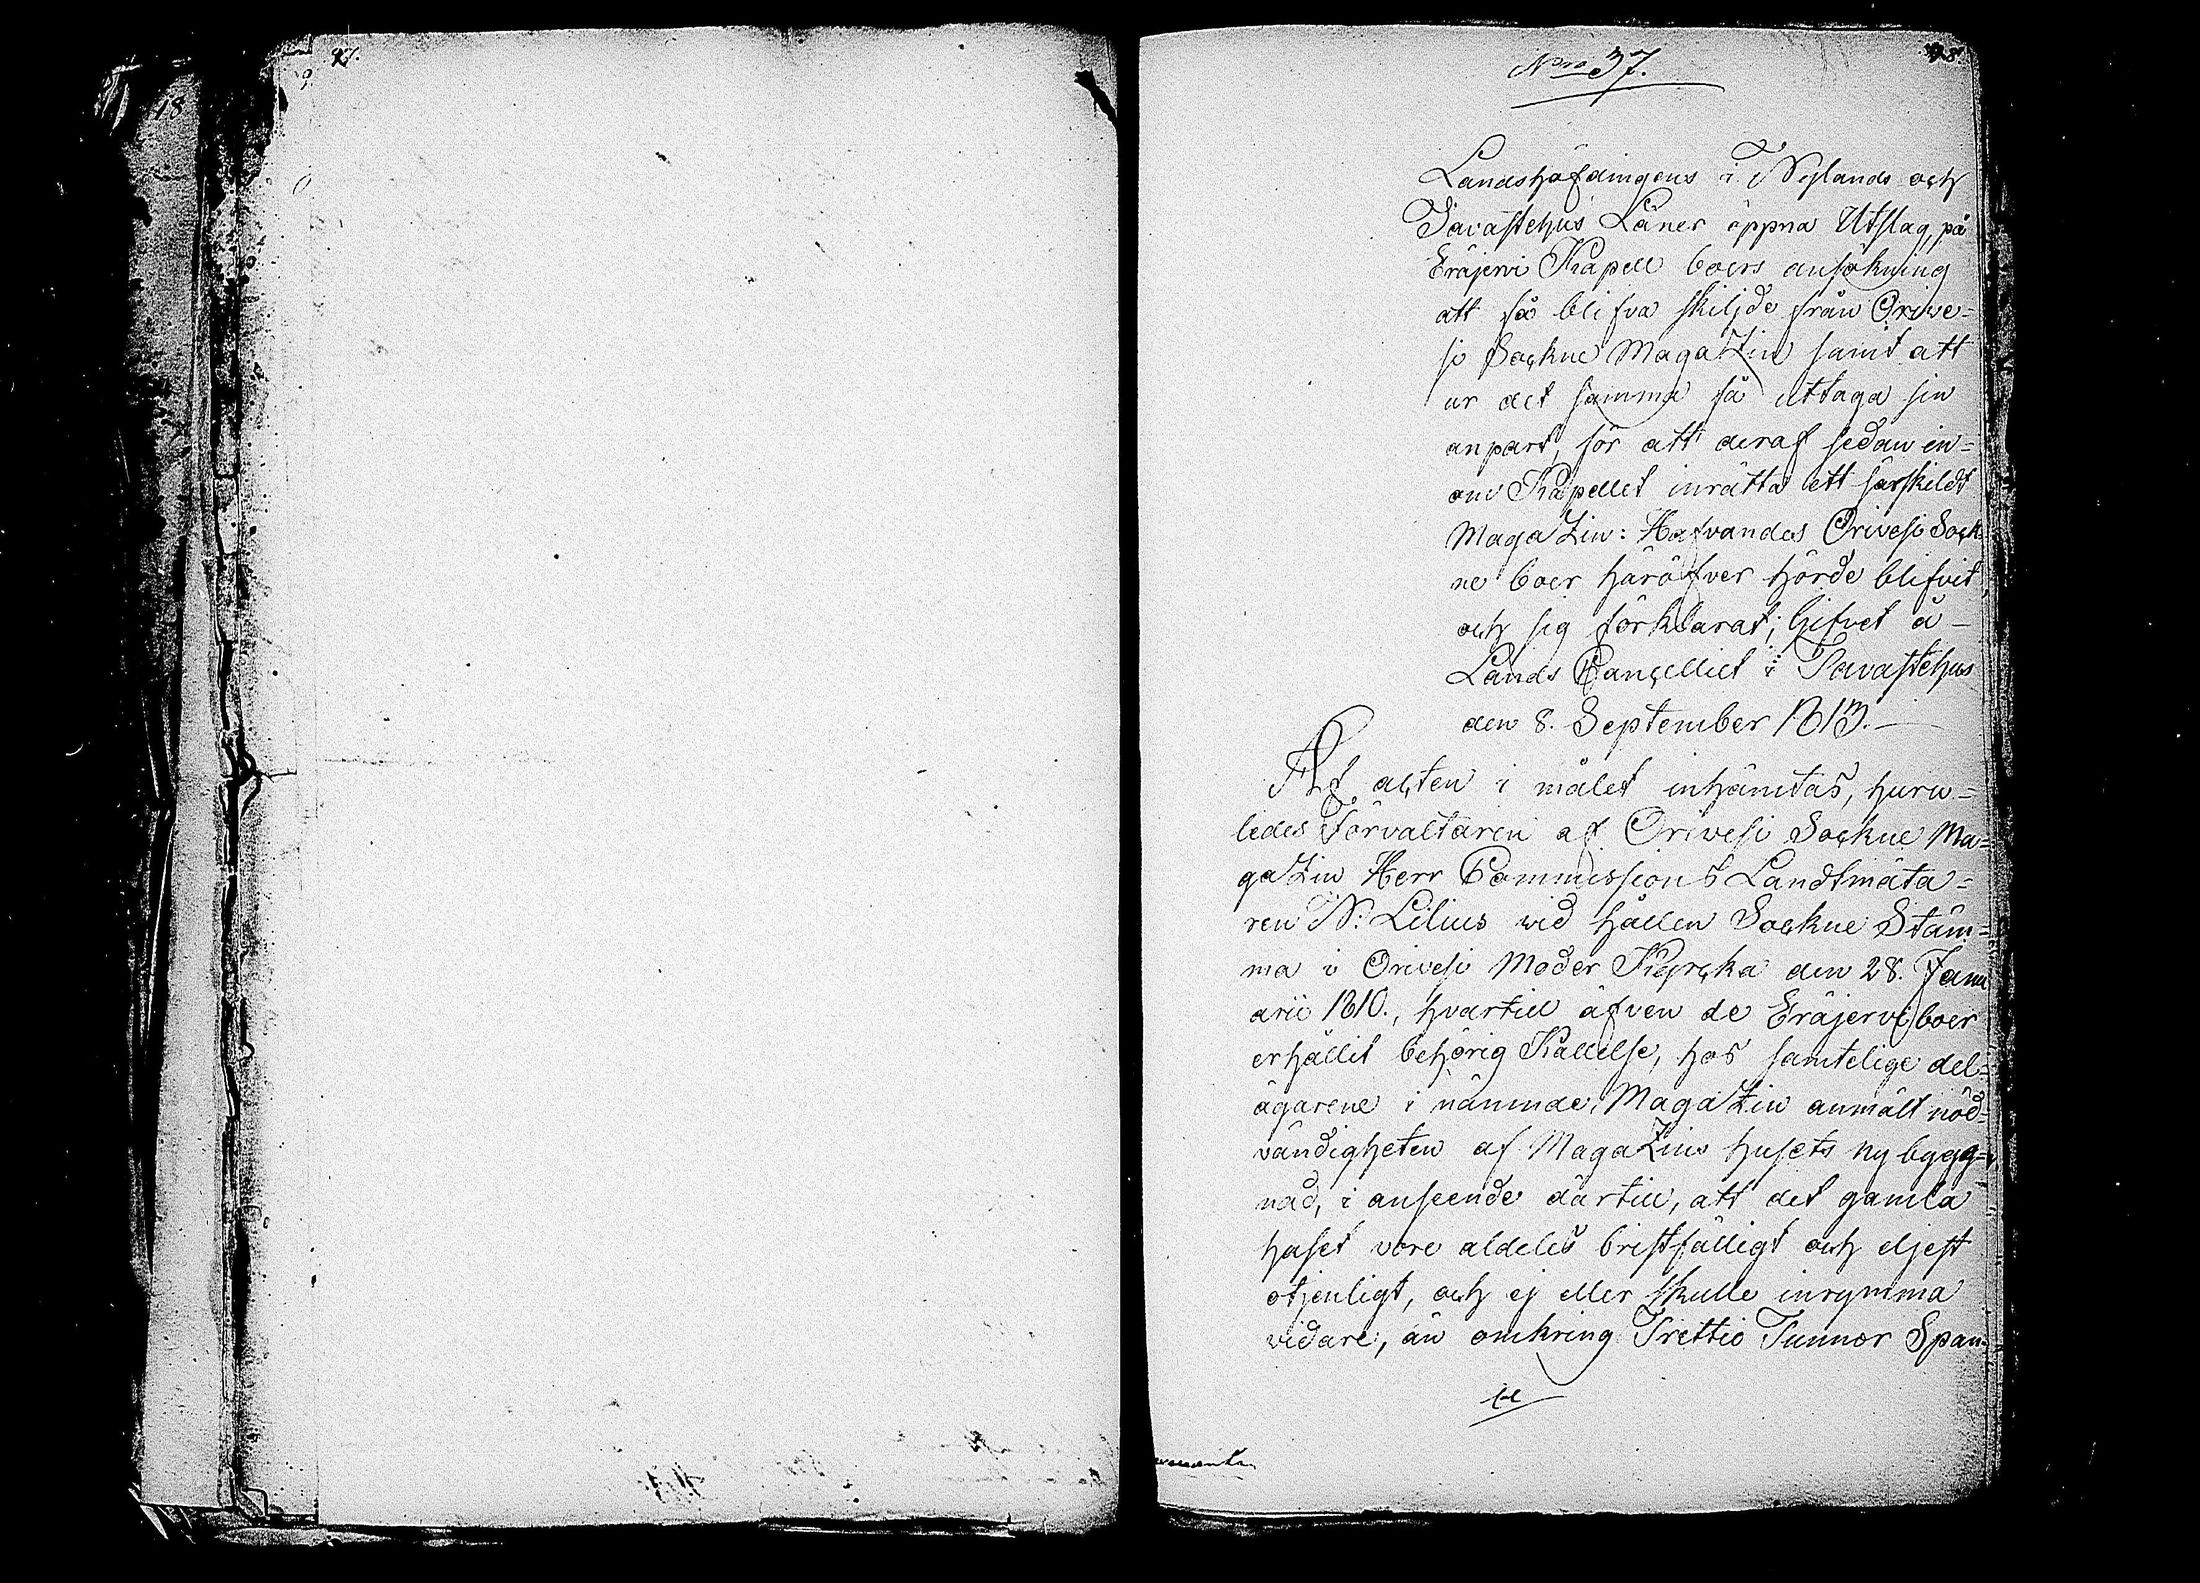 97.
18
98.
Nro 37.
Landshöfdingens i Nylands och
Tavastehus Läner öppna Utslag, på
Eräjervi Kapell boers ansökning
att få blifva skiljde från Orive=
si Sockne MagaZin samt att
ur det samma få uttaga sin
anpart, för att deraf sedan in=
om Kapellet inrätta ett särskildt
MagaZin: Hafvandes Orivesi Sock
ne boer häröfver hörde blifvit,
och sig förklarat; Gifvet å
Lands Cancelliet i Tavastehus
den 8. September 1813.
Af acten i målet inhämtas, huru=
ledes Förvaltaren af Orivesi Sockne Ma=
gaZin Herr Commissions Landtmäta=
ren N: Lilius vid hållen Sockne Stäm=
ma i Orivesi Moder Kyrcka den 28. Janu
arii 1810., hvartill äfven de Eräjervi boer
erhållit behörig Kallelse, hos samtelige del=
ägarene i nämnde MagaZin anmält nöd=
vändigheten af MagaZins husets ny bygg=
nad, i anseende därtill, att det gamla
huset vore aldeles bristfälligt och eljest
otjenligt, och ej eller skulle inrymma
vidare, än omkring Trettio Tunnor Span=